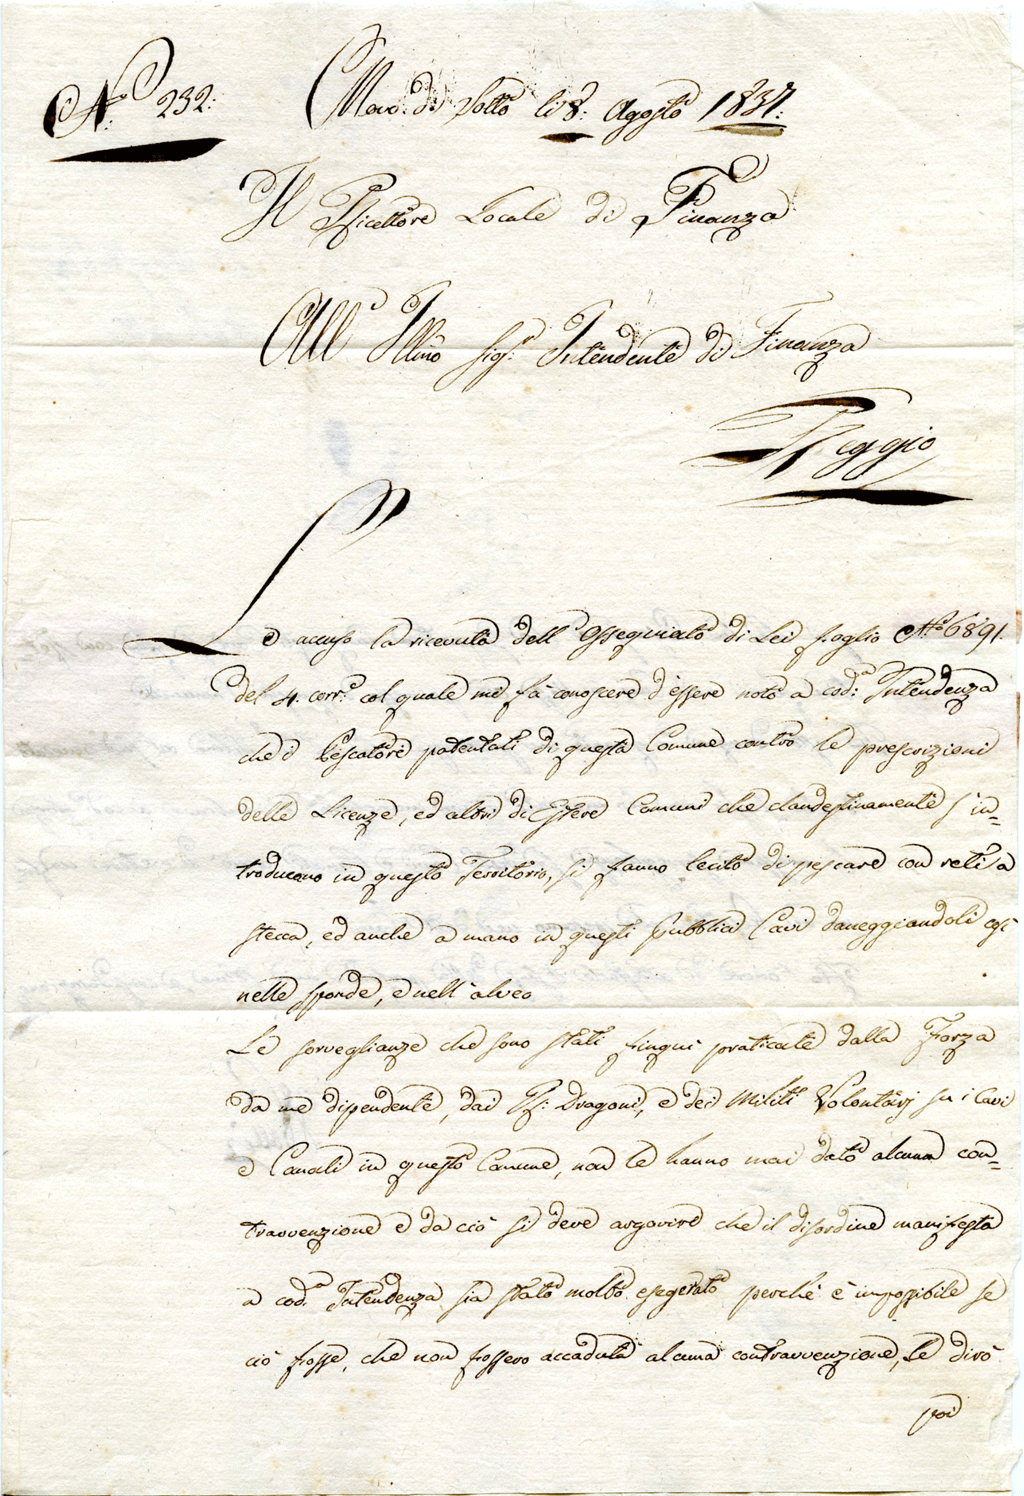 N.° 232:
di Sotto li 8: Agosto 1837:
Il Ricettore Locale di Finanza
All' Illmo Sig.r Intendente di Finanza
Reggio
Le accuso la ricevuta dell'ossequiato di Lei foglio N.° 6891.
del 4. corr.e col quale me fà conoscere d'essere noto a cod.a Intendenza
che i Pescatori patentati di questa Comune contro le prescrizioni
delle Licenze, ed altri di Estere Comuni che clandestinamente s'in=
troducono in questo Territorio, si fanno lecito di pescare con reti a
stecca, ed anche a mano in questi pubblici Cavi daneggiandoli così
nelle sponde, e nell'alveo
Le sorveglianze che sono state finquì praticate dalla Forza
da me dipendente, dai R: Dragoni, e dei Militi Volontarj su i Cavi
e Canali in questo Comune, non le hanno mai dato alcuna con=
travvenzione e da ciò si deve argovire che il disordine manifesta
a cod.a Intendenza sia stato molto esegerato perchè è impossibile se
ciò fosse, che non fossero accaduta alcuna contravvenzione, Le dirò
poi